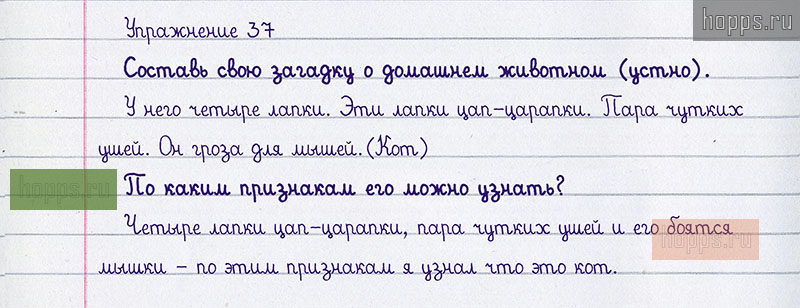 hopps.ru
Упражнение 37
Составь свою загадку о домашнем животном (устно).
У него четыре лапки. Эти лапки цап-царапки. Пара чутких
ушей. Он гроза для мышей. (Кот)
hopps.ru
По каким признакам его можно узнать?
Четыре лапки цап-царапки, пара чутких ушей и его боятся
hopps.ru
мышки – по этим признакам я узнал что это кот.